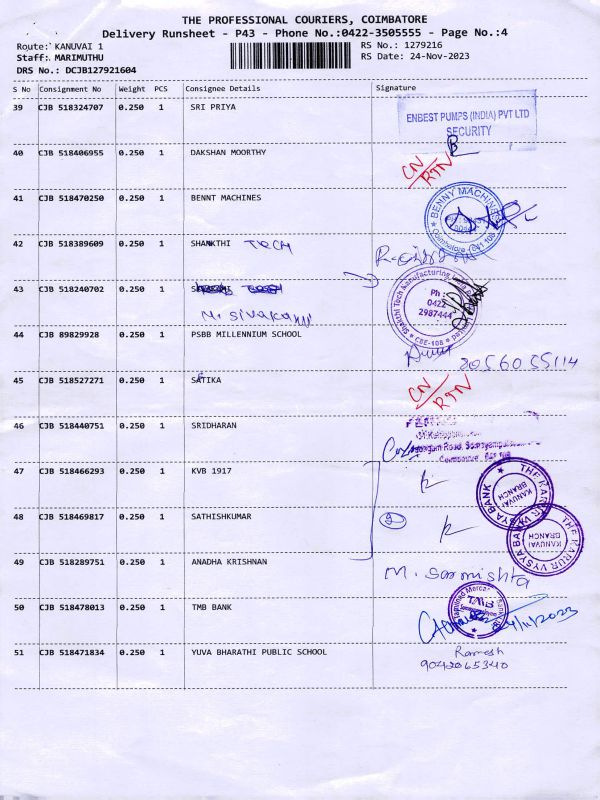 THE PROFESSIONAL COURIERS, COIMBATORE
Delivery Runsheet - P43 - Phone No.:0422-3505555 - Page No.:4
Route: KANUVAI 1 RS No.: 1279216
Staff: MARIMUTHU RS Date: 24-Nov-2023
DRS No.: DCJB127921604
S No Consignment No Weight PCS Consignee Details Signature
39 CJB 518324707 0.250 1 SRI PRIYA
ENBEST PUMPS (INDIA) PVT LTD
SECURITY
40 CJB 518406955 0.250 1 DAKSHAN MOORTHY CN/RTN
41 CJB 518470250 0.250 1 BENNT MACHINES BENNY MACHINES
42 CJB 518389609 0.250 1 SHANKTHI TECH
43 CJB 518240702 0.250 1
M. Sivakami
Shakthi Tech Manufacturing
Ph :
0422
2987444
CBE-108
44 CJB 89829928 0.250 1 PSBB MILLENNIUM SCHOOL 8056055114
45 CJB 518527271 0.250 1 SATIKA CN/RTN
46 CJB 518440751 0.250 1 SRIDHARAN
47 CJB 518466293 0.250 1 KVB 1917 THE KARUR VYSYA BANK KANUVAI BRANCH
48 CJB 518469817 0.250 1 SATHISHKUMAR 2 THE KARUR VYSYA BANK KANUVAI BRANCH
49 CJB 518289751 0.250 1 ANADHA KRISHNAN M. Sarmishta
50 CJB 518478013 0.250 1 TMB BANK TMB 24/11/2023
51 CJB 518471834 0.250 1 YUVA BHARATHI PUBLIC SCHOOL Ramesh
9042065340